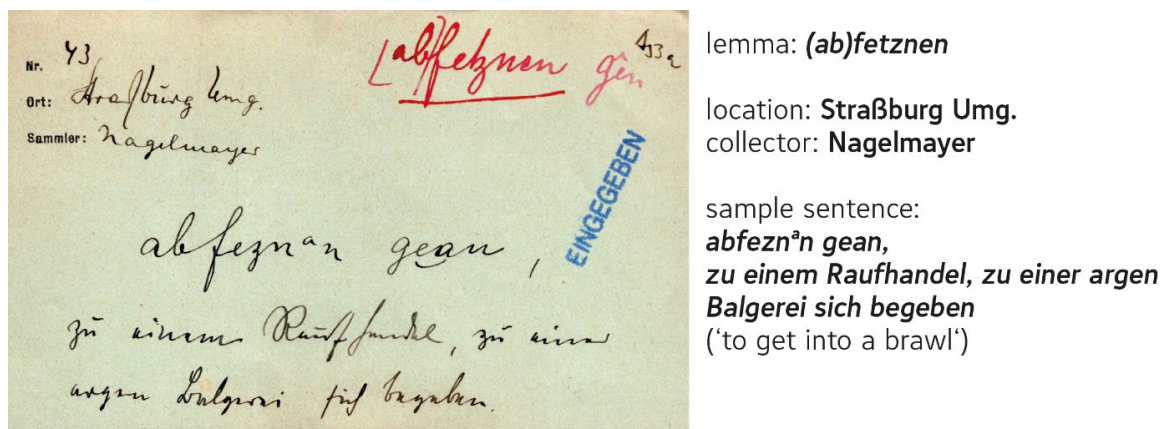 Nr. 43
(ab)fetznen gen
A 33a
Ort: Straßburg Umg.
Sammler: Nagelmayer
EINGEGEBEN
abfeznᵃn gean,
zu einem Raufhandel, zu einer
argen Balgerei sich begeben.
lemma: (ab)fetznen
location: Straßburg Umg.
collector: Nagelmayer
sample sentence:
abfeznᵃn gean,
zu einem Raufhandel, zu einer argen
Balgerei sich begeben
(‘to get into a brawl‘)